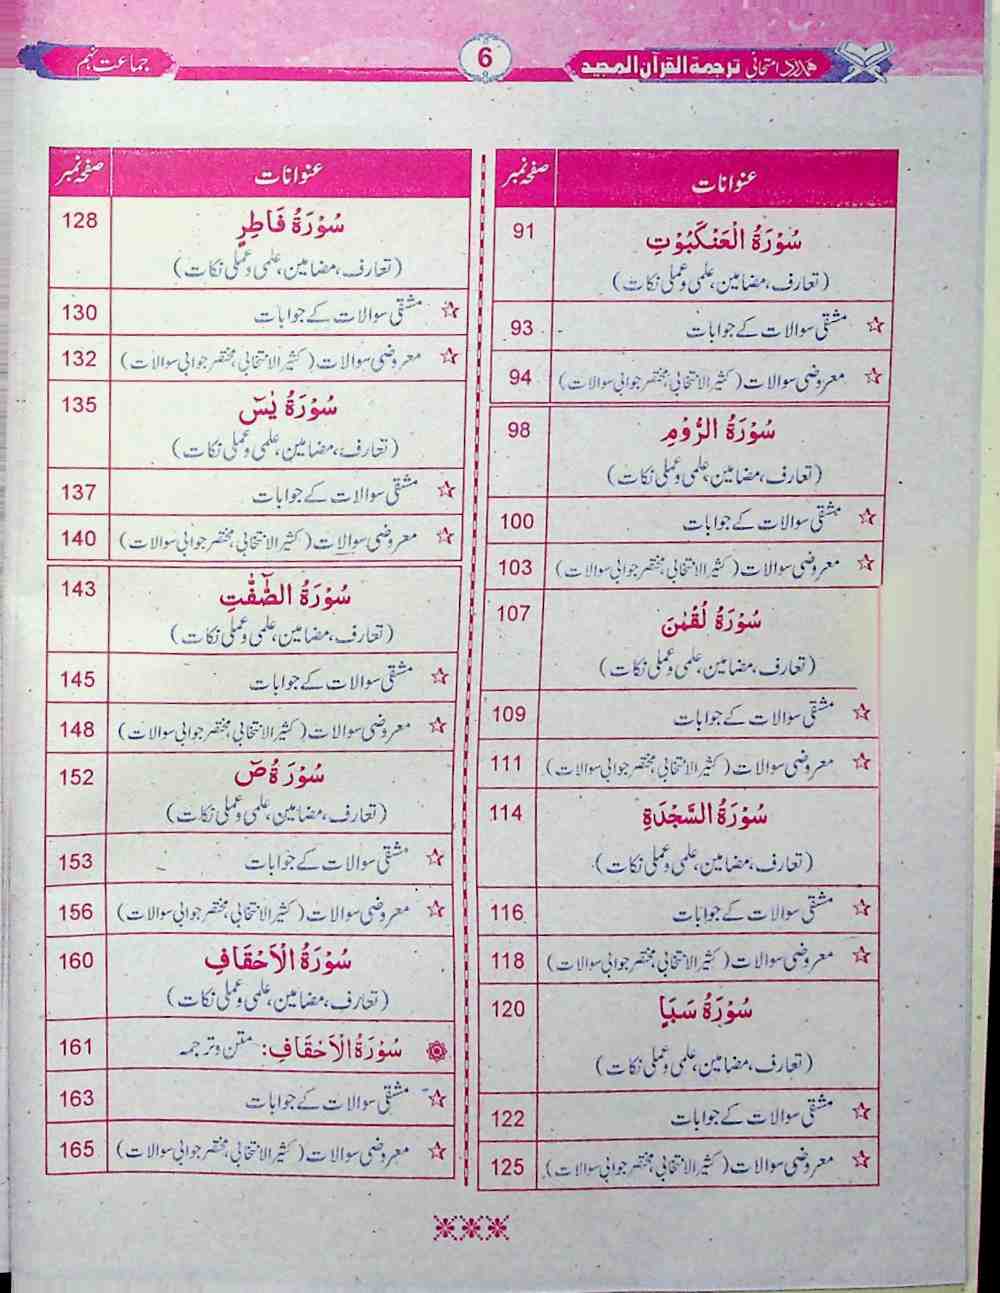 ہمدرد امتحانی ترجمۃ القرآن المجید
6
جماعت نہم
عنوانات صفحہ نمبر
سُوْرَۃُ الْعَنْکَبُوْتِ 91
(تعارف، مضامین، علمی و عملی نکات)
☆ مشقی سوالات کے جوابات 93
☆ معروضی سوالات (کثیر الانتخابی، مختصر جوابی سوالات) 94
سُوْرَۃُ الرُّوْمِ 98
(تعارف، مضامین، علمی و عملی نکات)
☆ مشقی سوالات کے جوابات 100
☆ معروضی سوالات (کثیر الانتخابی، مختصر جوابی سوالات) 103
سُوْرَۃُ لُقْمٰنَ 107
(تعارف، مضامین، علمی و عملی نکات)
☆ مشقی سوالات کے جوابات 109
☆ معروضی سوالات (کثیر الانتخابی، مختصر جوابی سوالات) 111
سُوْرَۃُ السَّجْدَۃِ 114
(تعارف، مضامین، علمی و عملی نکات)
☆ مشقی سوالات کے جوابات 116
☆ معروضی سوالات (کثیر الانتخابی، مختصر جوابی سوالات) 118
سُوْرَۃُ سَبَاٍ 120
(تعارف، مضامین، علمی و عملی نکات)
☆ مشقی سوالات کے جوابات 122
☆ معروضی سوالات (کثیر الانتخابی، مختصر جوابی سوالات) 125
عنوانات صفحہ نمبر
سُوْرَۃُ فَاطِرٍ 128
(تعارف، مضامین، علمی و عملی نکات)
☆ مشقی سوالات کے جوابات 130
☆ معروضی سوالات (کثیر الانتخابی، مختصر جوابی سوالات) 132
سُوْرَۃُ یٰسٓ 135
(تعارف، مضامین، علمی و عملی نکات)
☆ مشقی سوالات کے جوابات 137
☆ معروضی سوالات (کثیر الانتخابی، مختصر جوابی سوالات) 140
سُوْرَۃُ الصّٰٓفّٰتِ 143
(تعارف، مضامین، علمی و عملی نکات)
☆ مشقی سوالات کے جوابات 145
☆ معروضی سوالات (کثیر الانتخابی، مختصر جوابی سوالات) 148
سُوْرَۃُ صٓ 152
(تعارف، مضامین، علمی و عملی نکات)
☆ مشقی سوالات کے جوابات 153
☆ معروضی سوالات (کثیر الانتخابی، مختصر جوابی سوالات) 156
سُوْرَۃُ الْاَحْقَافِ 160
(تعارف، مضامین، علمی و عملی نکات)
سُوْرَۃُ الْاَحْقَافِ: متن و ترجمہ 161
☆ مشقی سوالات کے جوابات 163
☆ معروضی سوالات (کثیر الانتخابی، مختصر جوابی سوالات) 165